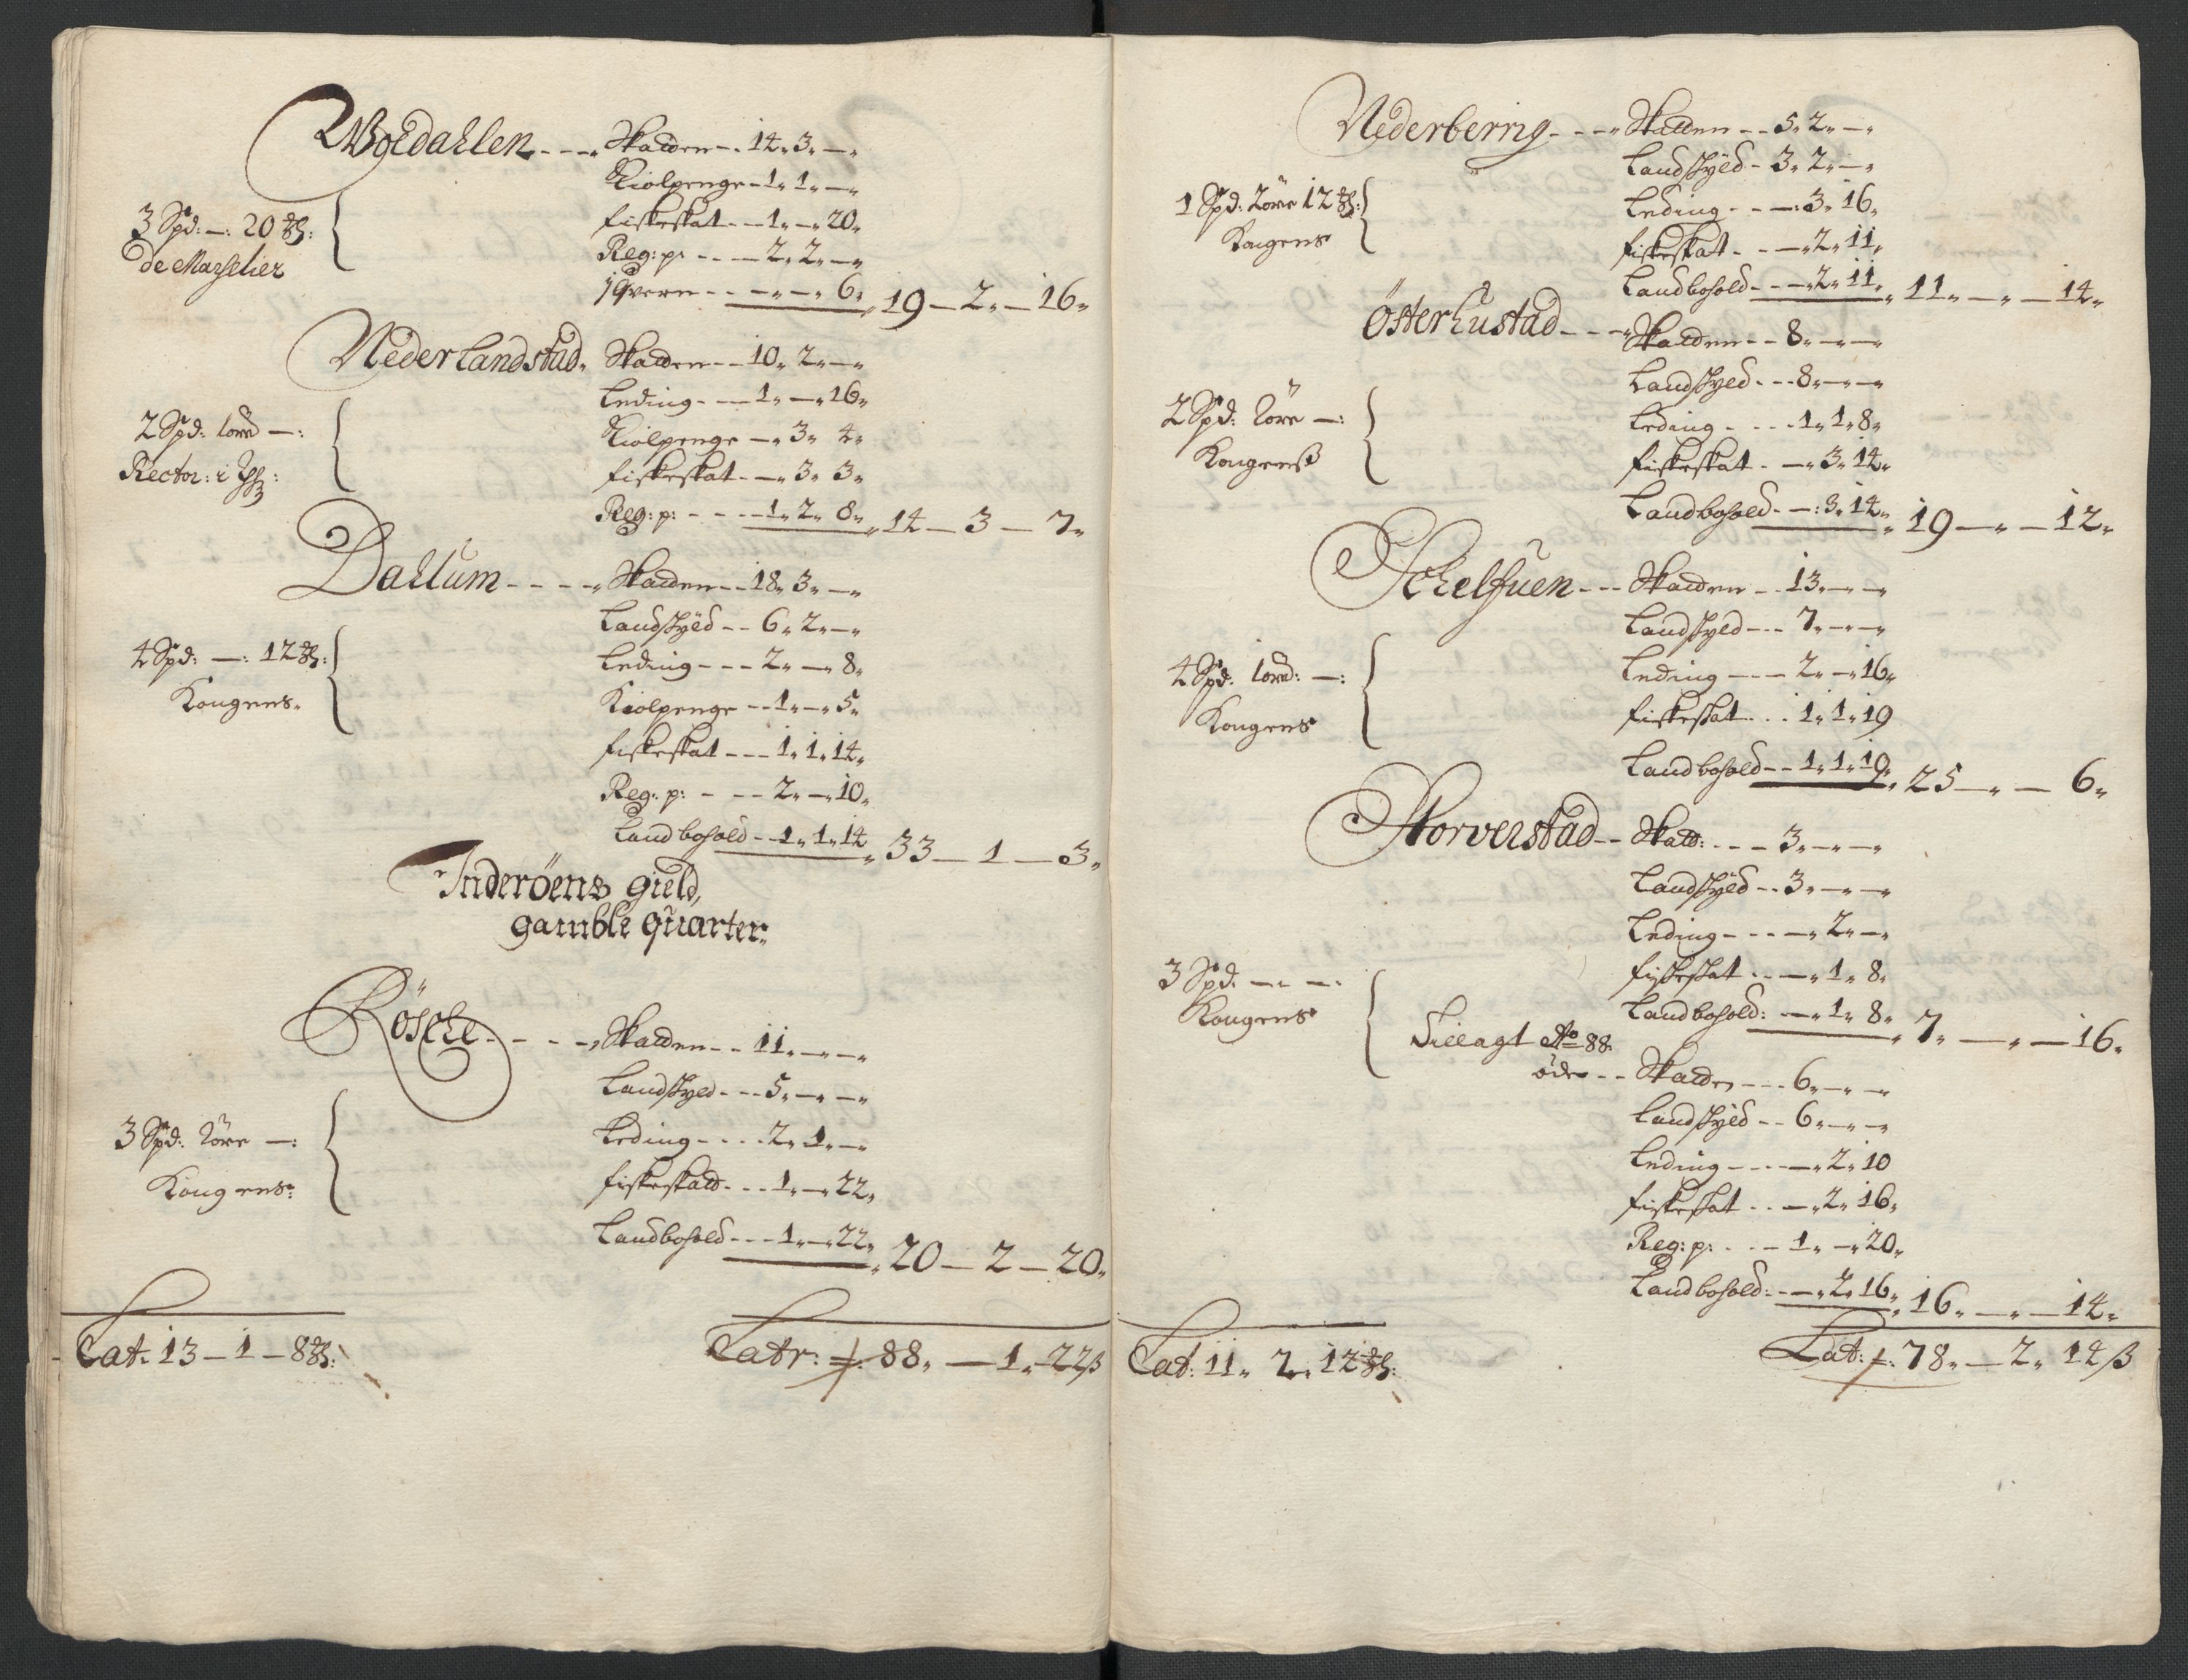 Woldahlen - - - Skatten - - 14 „ 3 „ — „
Kiolpenge - 1 „ 1 „ — „
fiskeskat - - 1 „ — „ 20 „
3 Spd: —: 20 ℔:
de Marselier
Reg: p: - - - 2 „ 2 „ — „
1 Qvern - - — „ — „ 6 „ 19 — 2 „ — 16 „
Nederlandstad „ Skatten - - 10 „ 2 „ — „
Leding - - 1 „ — „ 16 „
2 Spd: 1 öre —:
Kiolpenge — „ 3 „ 4 „
Rector: i
fiskeskat - — „ 3 „ 3 „
Reg: p: - - - 1 „ 2 „ 8 „ 14 — 3 — 7 „
Dahlum - - - - „ Skatten - - 18 „ 3 „ — „
Landskyld - - 6 „ 2 „ — „
4 Spd: —: 12 ℔:
Leding - - - 2 „ — „ 8 „
Kongens „
Kiolpenge - - 1 „ — „ 5 „
fiskeskat - - - 1 „ 1 „ 14 „
Reg: p: - - - 2 „ — „ 10 „
Landbohold - - 1 „ 1 „ 14 „ 33 — 1 — 3 „
Inderöens gield,
gamble quarter:
Rösche - - - - „ Skatten - - 11 „ — „ — „
Landskyld - - - 5 „ — „ — „
3 Spd: 2 öre —:
Leding - - - - 2 „ 1 „ — „
Kongens:
fiskeskatt - - - 1 „ — „ 22 „
Landbohold - - - 1 „ — „ 22 „ 20 — 2 — 20 „
Lat: 13 — 1 — 8 ℔:
Latr: 88 „ — 1 „ 22 ß
Nederberrig - - - „ Skatten - - 5 „ 2 „ — „
Landskyld - 3 „ 2 „ — „
1 Spd: 2 öre 12 ℔:
Leding - - —: 3 „ 16 „
Kongens
fiskeskat - - — „ 2 „ 11 „
Landbohold - - — „ 2 „ 11 „ 11 „ — „ — 14 „
Österhustad - - - „ Skatten - - 8 „ — „ — „
Landskyld - - - 8 „ — „ — „
2 Spd: 2 öre —:
Leding - - - - 1 „ 1 „ 8 „
Kongenß
fiskeskat - — „ 3 „ 14 „
Landbohold - —: 3 „ 14 „ 19 — „ — 12 „
Skatten - - 13 „ — „ — „
Landskyld - - - 7 „ — „ — „
4 Spd: 1 öre: —:
Leding - - - 2 „ — „ 16 „
Kongens
fiskeskat - - - 1 „ 1 „ 19
Landbohold - - 1 „ 1 „ 19 „ 25 — „ — 6 „
Storverstad - - Skatt: - - - 3 „ — „ — „
Landskyld - - 3 „ — „ — „
Leding - - - - — „ 2 „ — „
3 Spd: — „ — „
fiskeskat - - — „ 1 „ 8 „
Kongens
Landbohold: — „ 1 „ 8 „ 7 „ — „ — 16 „
Tillagt Ao 88
øde - - Skatten - - - 6 „ — „ — „
Landskyld - - 6 „ — „ — „
Leding - - - — „ 2 „ 10
fiskeskat - - — „ 2 „ 16 „
Reg: p: - - - 1 „ — „ 20 „
Landbohold: - — „ 2 „ 16 „ 16 „ — „ — 14 „
Lat: 11 „ 2 „ 12 ℔:
Lat: 78 „ — 2 „ 14 ß